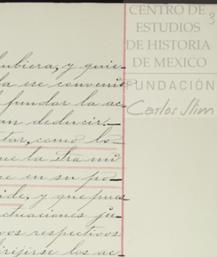 CENTRO DE
ESTUDIOS
DE HISTORIA
DE MEXICO
FUNDACIÓN
Carlos Slim
3
hubiera, y quie-
ese convenio
fundar la ac-
an deducir.
tar, como lo-
que la otra mi
e en su po-
ide, y que pue
ctuaciones ju-
vos respectivos
dirijirse los ac-